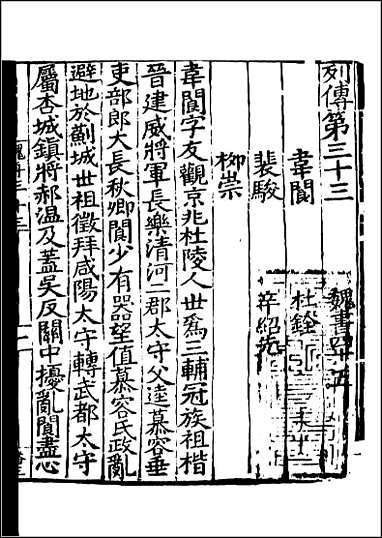 列傳第三十三
魏書四十五
韋閬
杜銓
裴駿
辛紹先
柳崇
韋閬字友觀京兆杜陵人世爲三輔冠族祖楷
晉建威將軍長樂清河二郡太守父逵慕容垂
吏部郎大長秋卿閬少有器望值慕容氏政亂
避地於薊城世祖徵拜咸陽太守轉武都太守
屬杏城鎮將郝温及蓋吳反關中擾亂閬盡心